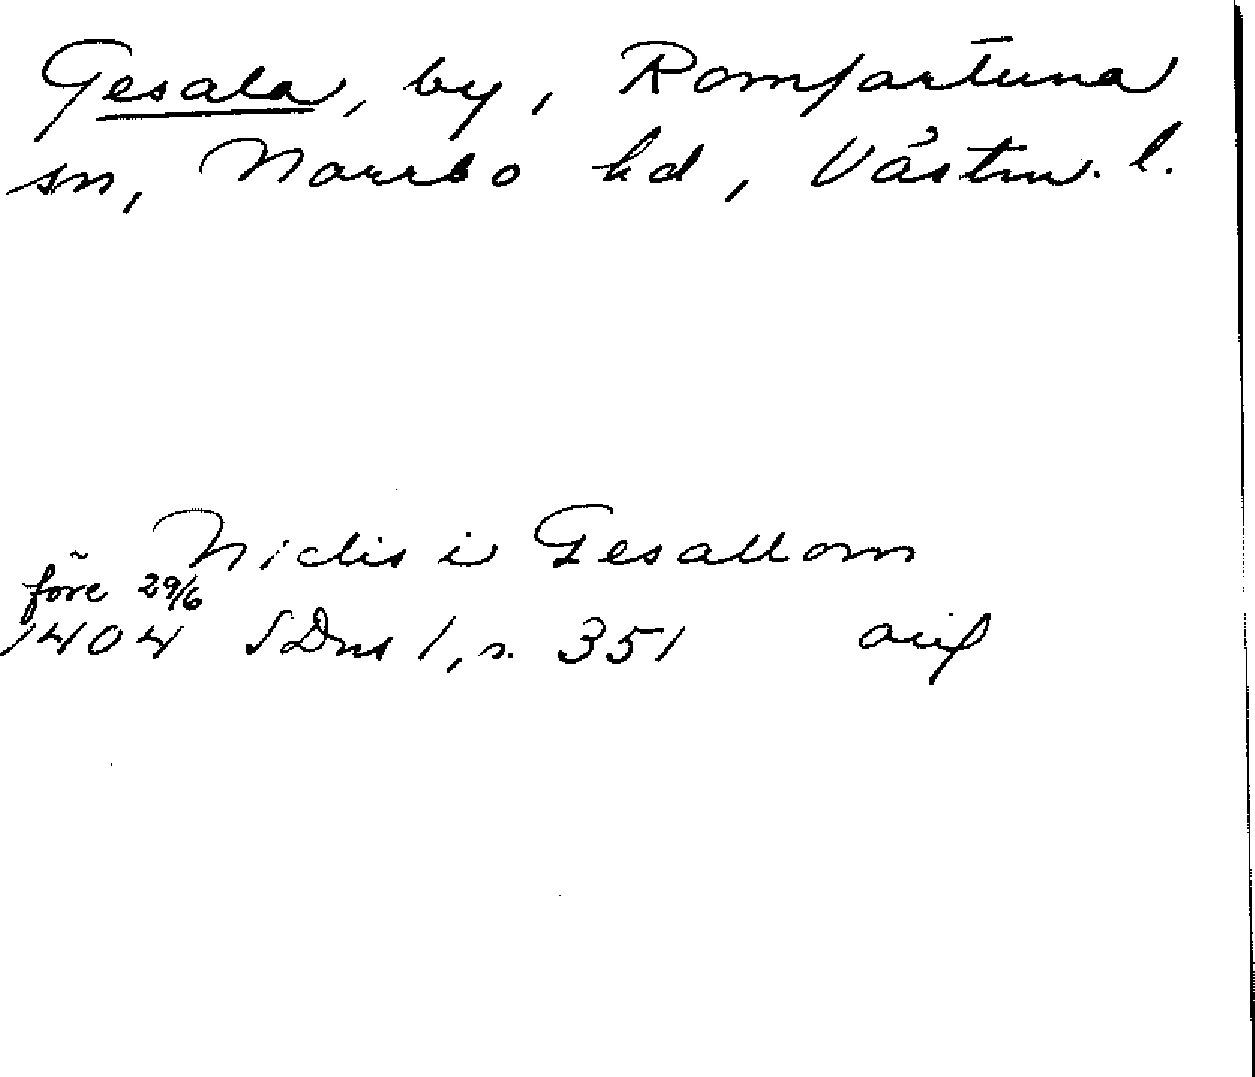 Gesala, by, Romfartuna
sn, Norrbo hd, Västm. l.
Niclis i Gesallom
före 29/6
1404 SDns 1, s. 351 avs